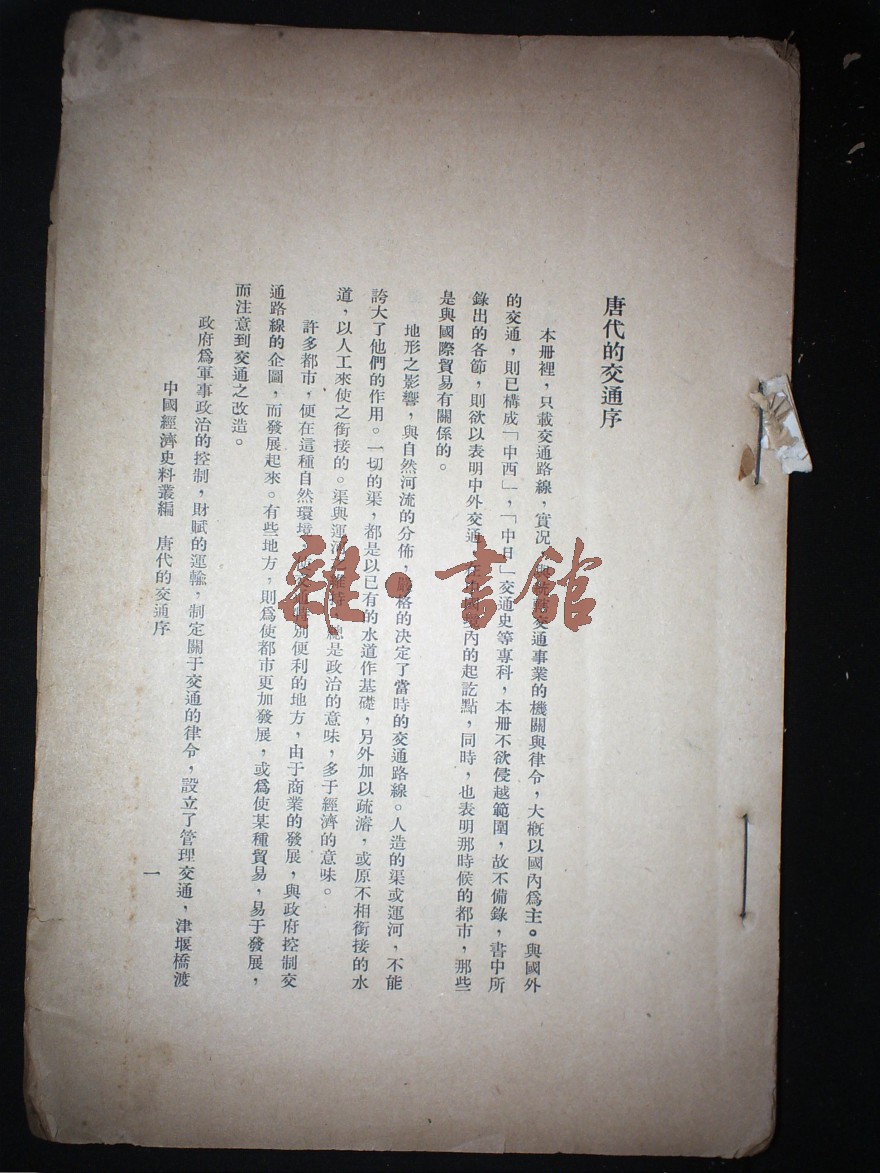 唐代的交通序
本册裡，只載交通路線，實況，與統轄交通事業的機關與律令，大概以國內爲主。與國外
的交通，則已構成「中西」，「中日」交通史等專科，本册不欲侵越範圍，故不備錄，書中所
錄出的各節，則欲以表明中外交通，在中國境內的起訖點，同時，也表明那時候的都市，那些
是與國際貿易有關係的。
地形之影響，與自然河流的分佈，嚴格的決定了當時的交通路線。人造的渠或運河，不能
誇大了他們的作用。一切的渠，都是以已有的水道作基礎，另外加以疏濬，或原不相銜接的水
道，以人工來使之銜接的。渠與運河之維持，總是政治的意味，多于經濟的意味。
許多都市，便在這種自然環境，使交通特別便利的地方，由于商業的發展，與政府控制交
通路線的企圖，而發展起來。有些地方，則爲使都市更加發展，或爲使某種貿易，易于發展，
而注意到交通之改造。
政府爲軍事政治的控制，財賦的運輸，制定關于交通的律令，設立了管理交通，津堰橋渡
中國經濟史料叢編　唐代的交通序
一
雜·書館